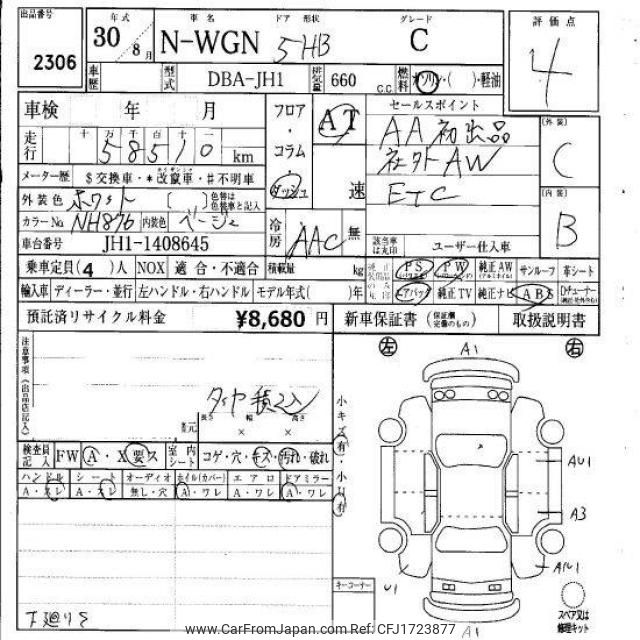 出品番号 2306
年式 30 8月
車名 N-WGN
ドア 形状 5HB
グレード C
評価点 4
車歴
型式 DBA-JH1
排気量 660 C.C.
燃料 ガソリン・( )・軽油
車検 年 月
フロア・コラム ダッシュ
AT 速
セールスポイント
AA初出品
社外AW
ETC
外装 C
内装 B
走行 十 万 千 百 十 一
58510 km
メーター歴 $交換車・*改竄車・#不明車
外装色 ホワイト ( ) 色替は色替車と記入
カラーNo. NH876 内装色 ベージュ
冷房 AAC 無
該当車は丸印 ユーザー仕入車
車台番号 JH1-1408645
乗車定員(4)人 NOX 適合・不適合 積載量 kg
PS PW 純正AW サンルーフ 革シート
輸入車 ディーラー・並行 左ハンドル・右ハンドル モデル年式( )年
エアバッグ 純正TV 純正ナビ ABS
預託済リサイクル料金 ¥8,680円
新車保証書 (保証欄完備のもの) 取扱説明書
注意事項(出品店記入)
左 A1 右
タイヤ積込
長さ 幅 高さ
× ×
小キズ有・小凹有
検査員記入 FW A・X要ス 室内シート コゲ・穴・キズ・汚れ・破れ
ハンドル シート オーディオ ホイル(カバー) エアロ ドアミラー
A・スレ A・スレ 無し・穴 A・ワレ A・ワレ A・ワレ
AU1
A3
U1
キーコーナー
スペア又は修理キット
下廻りS
A1
www.CarFromJapan.com Ref No: CFJ1723877